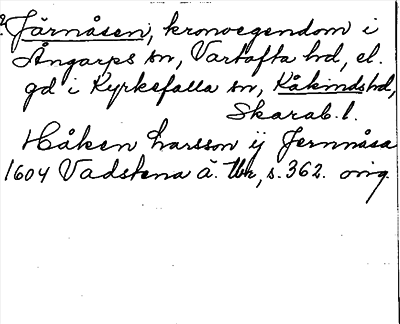 ? Järnåsen, kronoegendom i
Ångarps sn, Vartofta hd, el.
gd i Kyrkefalla sn, Kåkinds hd,
Skarab. l.
Håken Larsson ij Jernnåsa
1604 Vadstena ä. tbr, s. 362. orig.